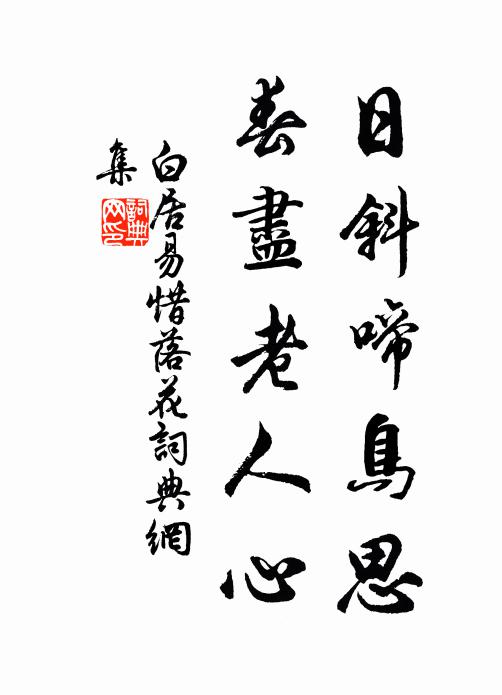 日斜啼鳥思
春盡老人心
白居易惜落花詞典網
集
詞典
网印